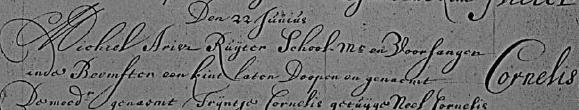 Den 22 Junius
Michiel Arisz Ruyter School-mr en Voorsanger
inde Beemster een kint laten Doopen en genaemt Cornelis
De moedr genaemt Trijntje Cornelis getuyge Neel Cornelis